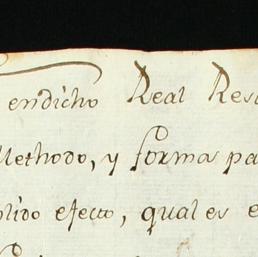 endicho Real Res
Methodo, y forma pa
plido efecto, qual es e